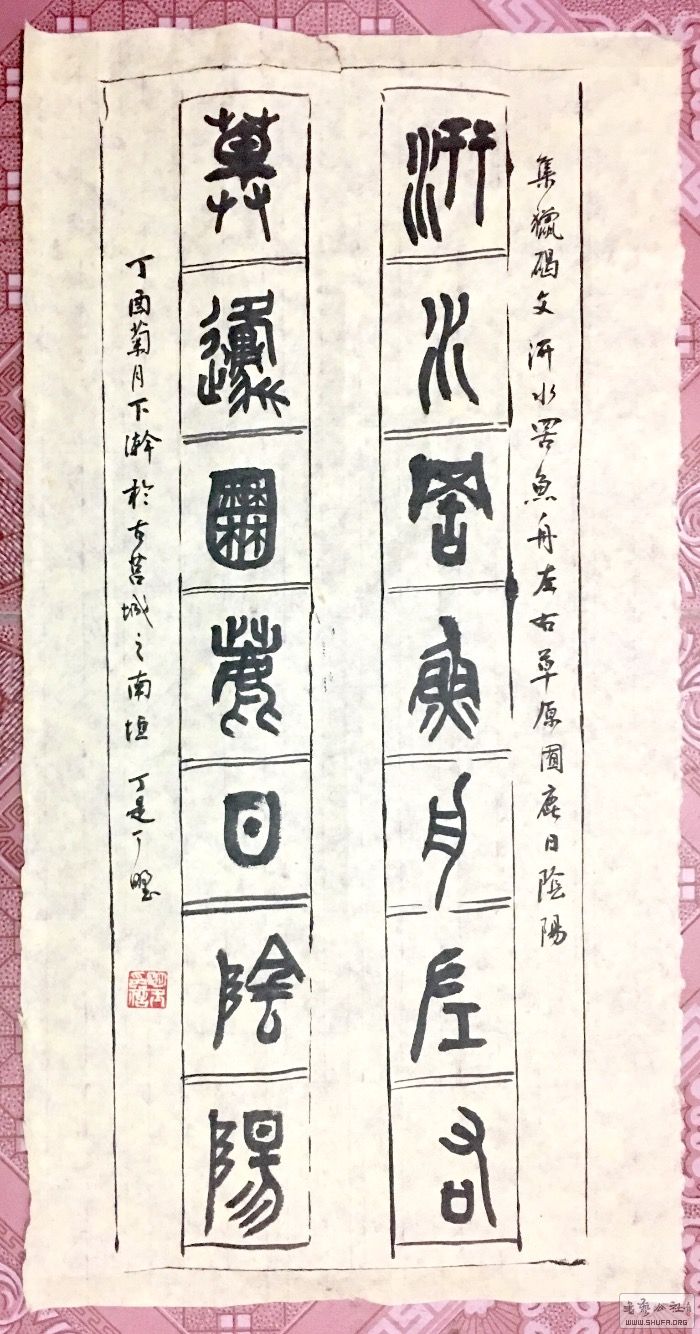 集獵碣文 汧水罟魚舟左右草原囿鹿日陰陽
汧水罟魚舟左右
草邍囿鹿日陰陽
丁酉菊月下澣於古莒城之南垣 丁是丁
书艺公社
WWW.SHUFA.ORG